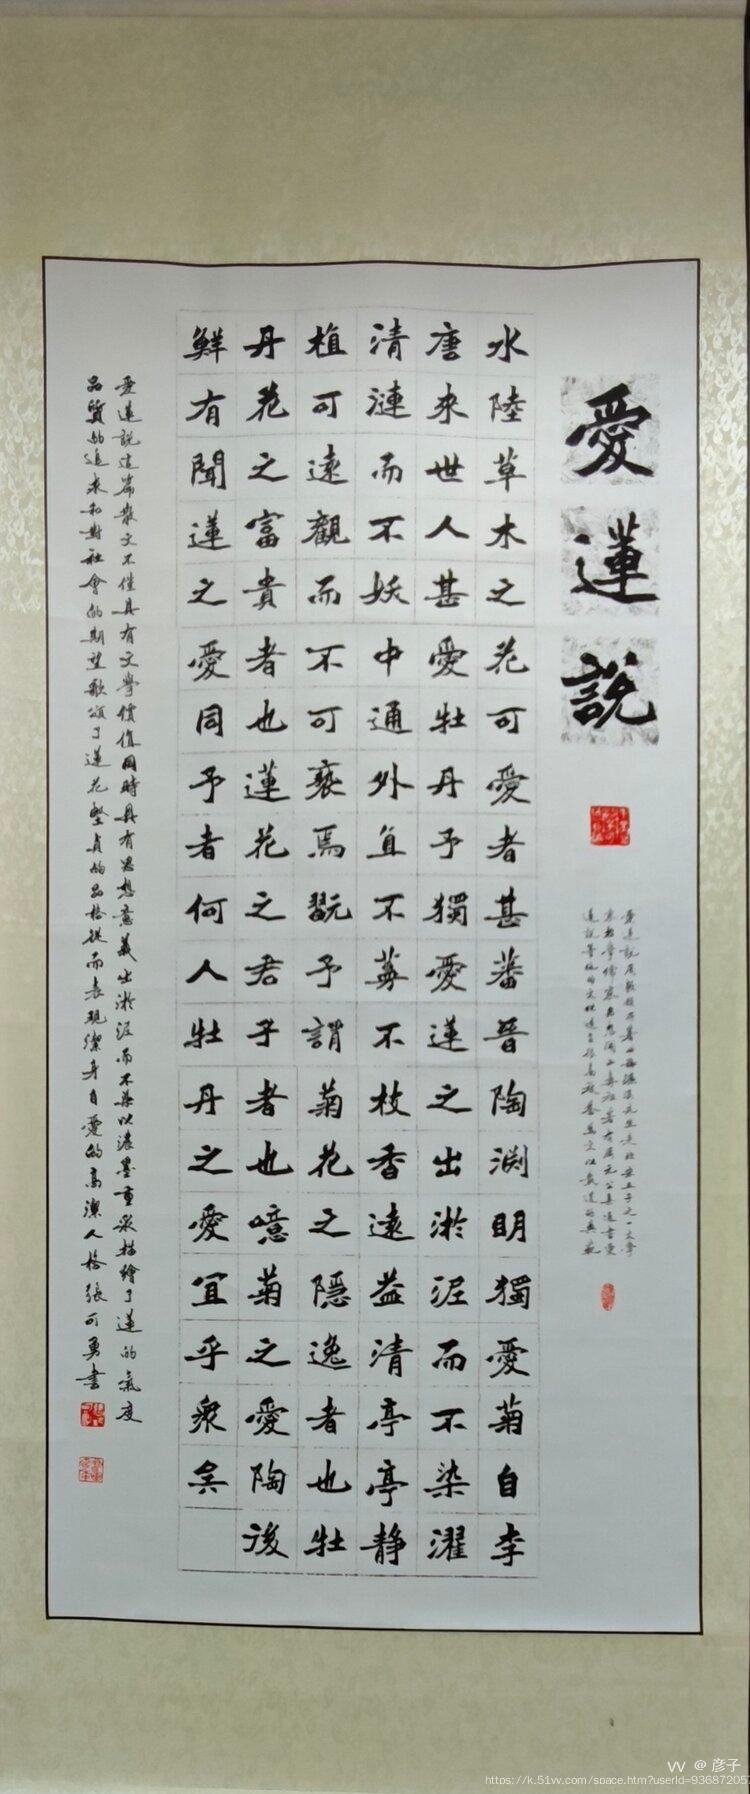 愛蓮說
水陸草木之花可愛者甚蕃晉陶渊明獨愛菊自李
唐來世人甚愛牡丹予獨愛蓮之出淤泥而不染濯
清漣而不妖中通外直不蔓不枝香遠益清亭亭静
植可遠觀而不可褻焉翫予謂菊花之隠逸者也牡
丹花之富貴者也蓮花之君子者也噫菊之愛陶後
鮮有聞蓮之愛同予者何人牡丹之愛宜乎衆矣
愛蓮説這篇散文不僅具有文學價值同時具有思想意義出淤泥而不染以濃墨重彩描繪了蓮的氣度
品質的追求和對社會的期望歌頌了蓮花堅貞的品格從而表現潔身自愛的高潔人格張可勇書
VV @ 彦子
https://k.51vv.com/space.htm?userId=93687205